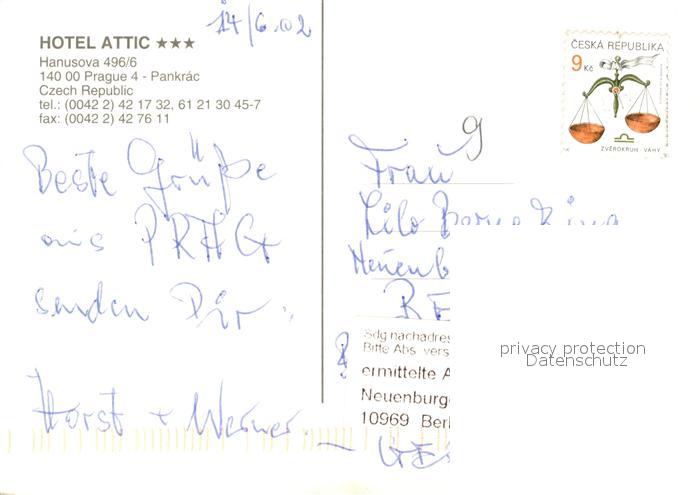 14/6.02
HOTEL ATTIC ★★★
Hanusova 496/6
140 00 Prague 4 - Pankrác
Czech Republic
tel.: (0042 2) 42 17 32, 61 21 30 45-7
fax: (0042 2) 42 76 11
Beste Grüße
aus PRAG
senden Dir:
Horst + Werner.
ČESKÁ REPUBLIKA
9 Kč
ZVĚROKRUH - VÁHY
9
Frau
Lilo
Neuenb
BE
Sdg nachadres
Bitte Abs vers
ermittelte A
Neuenburge
10969 Berl
privacy protection
Datenschutz